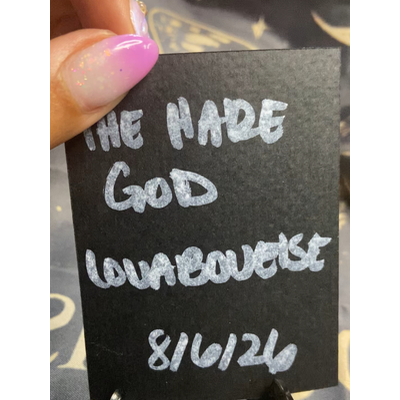 THE MADE
GOD
LOVABOVEISE
8/6/26